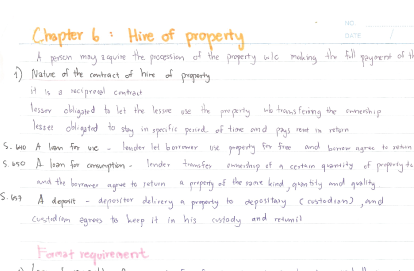 NO.
DATE /
Chapter 6 : Hire of property
A person may acquire the possession of the property w/o making the full payment of th
1) Nature of the contract of hire of property
it is a reciprocal contract
lessor obligated to let the lessee use the property w/o transferring the ownership
lessee obligated to stay in specific period of time and pays rent in return
S.640 A loan for use - lender let borrower use property for free and borrower agree to return
S.650 A loan for consumption - lender transfer ownership of a certain quantity of property to
and the borrower agree to return a property of the same kind, quantity and quality
S.657 A deposit - depositor delivery a property to depositary (custodian), and
custodian agrees to keep it in his custody and return it
Format requirement